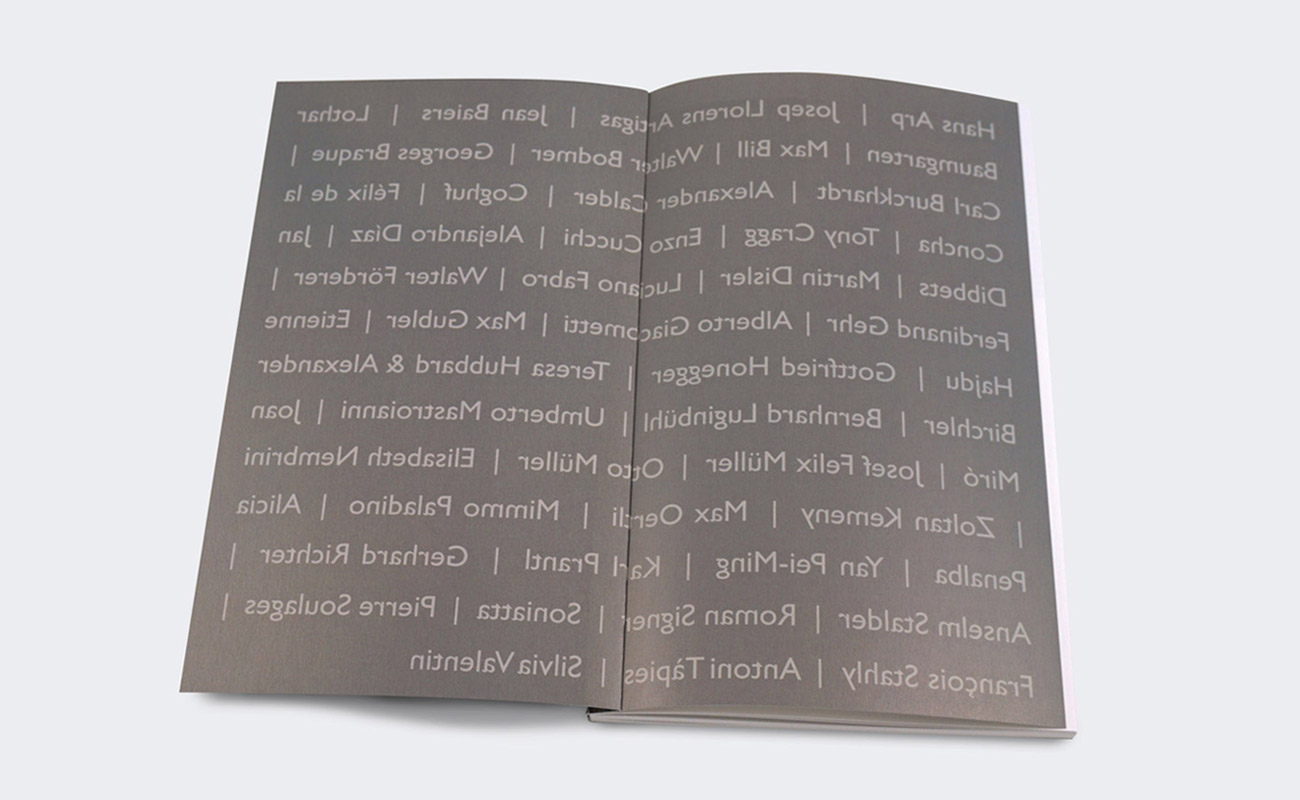 Hans Arp | Josep Llorens Artigas | Jean Baiers | Lothar
Baumgarten | Max Bill | Walter Bodmer | Georges Braque |
Carl Burckhardt | Alexander Calder | Coghuf | Félix de la
Concha | Tony Cragg | Enzo Cucchi | Alejandro Díaz | Jan
Dibbets | Martin Disler | Luciano Fabro | Walter Förderer |
Ferdinand Gehr | Alberto Giacometti | Max Gubler | Etienne
Hajdu | Gottfried Honegger | Teresa Hubbard & Alexander
Birchler | Bernhard Luginbühl | Umberto Mastroianni | Joan
Miró | Josef Felix Müller | Otto Müller | Elisabeth Nembrini
| Zoltan Kemeny | Max Oertli | Mimmo Paladino | Alicia
Penalba | Yan Pei-Ming | Karl Prantl | Gerhard Richter |
Anselm Stalder | Roman Signer | Soniatta | Pierre Soulages |
François Stahly | Antoni Tàpies | Silvia Valentin